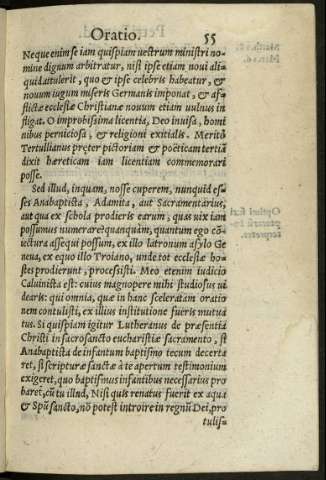 Oratio. 55
Neque enim se iam quispiam uestrum ministri no-
mine dignum arbitratur, nisi ipse etiam noui ali-
quid attulerit, quo & ipse celebris habeatur, &
nouum iugum miseris Germanis imponat, & af-
flictæ ecclesiæ Christianæ nouum etiam uulnus in-
fligat. O improbißima licentia, Deo inuisa, homi
nibus perniciosa, & religioni exitialis. Meritò
Tertullianus præter pictoriam & poëticam tertiā
dixit hæreticam iam licentiam commemorari
posse.
Sed illud, inquam, nosse cuperem, nunquid es-
ses Anabaptista, Adamita, aut Sacramentarius,
aut qua ex schola prodieris earum, quas uix iam
possumus numerare? quanquàm, quantum ego cō-
iectura assequi possum, ex illo latronum asylo Ge
neua, ex equo illo Troiano, unde tot ecclesiæ ho-
stes prodierunt, processisti. Meo etenim iudicio
Caluinista est: cuius magnopere mihi studiosus ui
dearis: qui omnia, quæ in hanc sceleratam oratio
nem contulisti, ex illius institutione fueris mutua
tus. Si quispiam igitur Lutheranus de præsentia
Christi in sacrosancto eucharistiæ sacramento, si
Anabaptista de infantum baptismo tecum decerta
ret, si scripturæ sanctæ à te apertum testimonium
exigeret, quo baptismus infantibus necessarius pro
baret, cū tu illud, Nisi quis renatus fuerit ex aqua
& Spū sancto, nō potest introire in regnū Dei, pro
tulis-